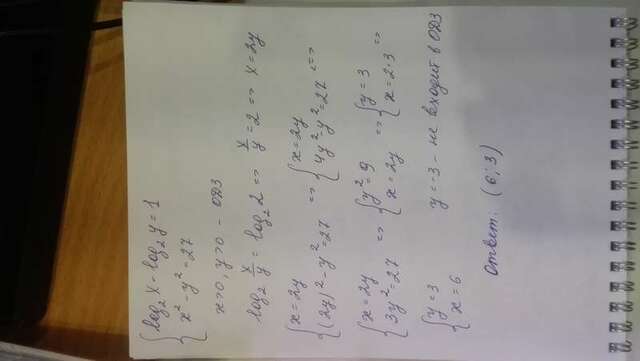 { log₂x - log₂y = 1
{ x² - y² = 27
x>0, y>0 - ОДЗ
log₂ x/y = log₂ 2 => x/y = 2 => x = 2y
{ x = 2y
{ (2y)² - y² = 27 => { x = 2y
{ 4y² - y² = 27 <=>
{ x = 2y
{ 3y² = 27 => { y² = 9
{ x = 2y => { y = 3
{ x = 2·3 =>
{ y = 3
{ x = 6 y = -3 - не входит в ОДЗ
Ответ: (6; 3)